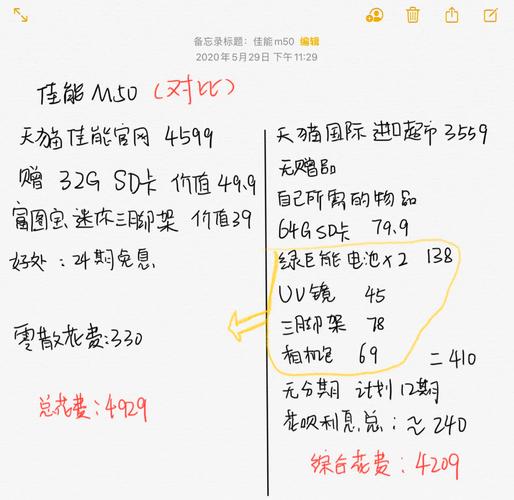 备忘录标题：佳能m50 编辑
2020年5月29日 下午11:29
佳能M50（对比）
天猫佳能官网 4599
赠 32G SD卡 价值49.9
富图宝迷你三脚架 价值39
好处：24期免息
零散花费:330
总花费：4929
天猫国际进口超市3559
无赠品
自己所需的物品
64G SD卡 79.9
绿巨能电池×2 138
UV镜 45
三脚架 78
相机包 69 =410
无分期 计划12期
花呗利息总：≈240
综合花费：4209